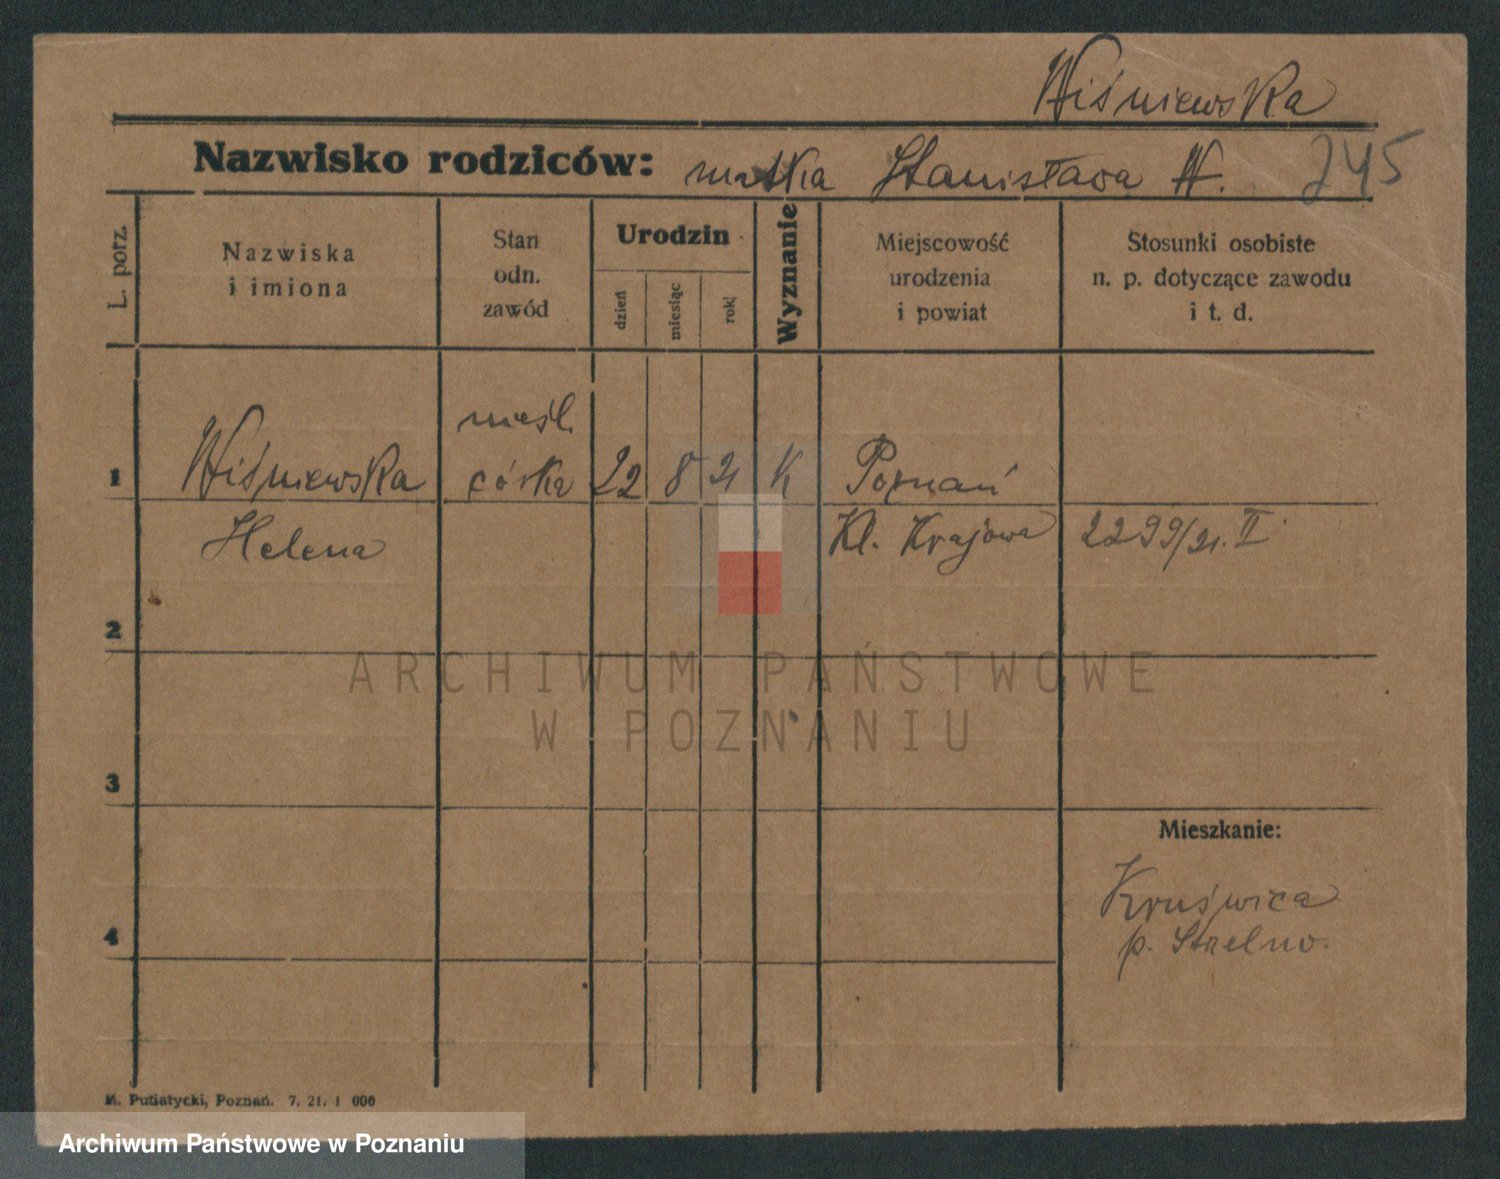 Wiśniewska
Nazwisko rodziców: matka Stanisława W. 245
L. porz.
Nazwiska
i imiona
Stan
odn.
zawód
Urodzin
dzień
miesiąc
rok
Wyznanie
Miejscowość
urodzenia
i powiat
Stosunki osobiste
n. p. dotyczące zawodu
i t. d.
nieśl.
1 Wiśniewska córka 22 8 21 K Poznań
Helena Kl. Krajowa 2299/21. II
2
3
4
Mieszkanie:
Kruświca
p. Strzelno.
M. Putiatycki, Poznań. 7. 21. 1 000
ARCHIWUM PAŃSTWOWE
W POZNANIU
Archiwum Państwowe w Poznaniu